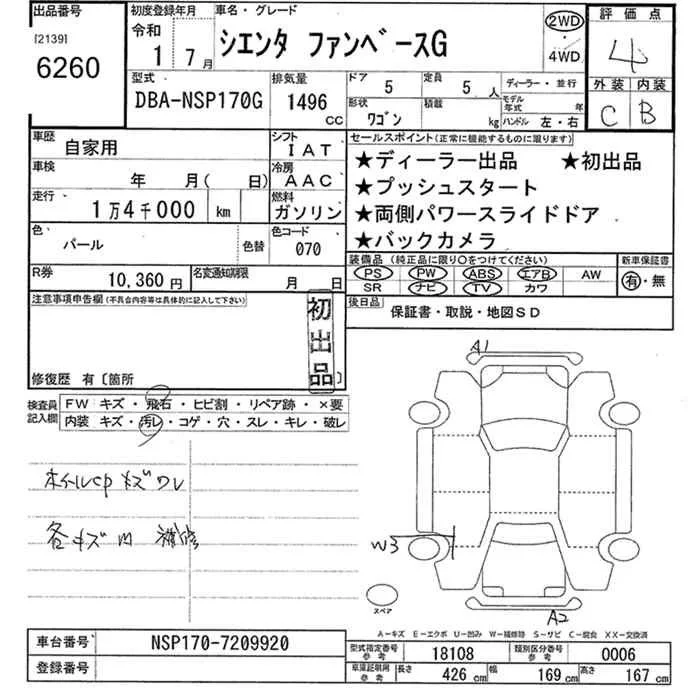 出品番号
[2139]
6260
初度登録年月
令和
1 7月
車名・グレード
シエンタ ファンベースG
2WD
・
4WD
評価点
4
外装 内装
C B
型式
DBA-NSP170G
排気量
1496 cc
ドア
5
定員
5 人
ディーラー・並行
形状
ワゴン
積載
kg
モデル年式 年
ハンドル 左・右
車歴
自家用
シフト
IAT
車検
年 月( 日)
冷房
AAC
走行
1万4千000 km
燃料
ガソリン
色
パール
色替
色コード
070
R券
10,360円
名変通知期限
月 日
セールスポイント(正常に機能するものに限ります)
★ディーラー出品 ★初出品
★プッシュスタート
★両側パワースライドドア
★バックカメラ
装備品(純正品に限り○をつけてください)
PS PW ABS エアB AW
SR ナビ TV カワ
新車保証書
有・無
後日品
保証書・取説・地図SD
注意事項申告欄(不具合内容等は具体的に記入して下さい)
初出品
修復歴 有〔箇所 〕
検査員記入欄
FW キズ・飛石・ヒビ割・リペア跡・×要
内装 キズ・汚レ・コゲ・穴・スレ・キレ・破レ
ホイルcp キズ ワレ
各キズ 凹 補修
A1
W3
A2
スペア
A−キズ E−エクボ U−凹み W−補修跡 S−サビ C−腐食 XX−交換済
車台番号
NSP170-7209920
登録番号
型式指定番号参考
18108
類別区分番号参考
0006
車庫証明用参考
長さ 426 cm
幅 169 cm
高さ 167 cm